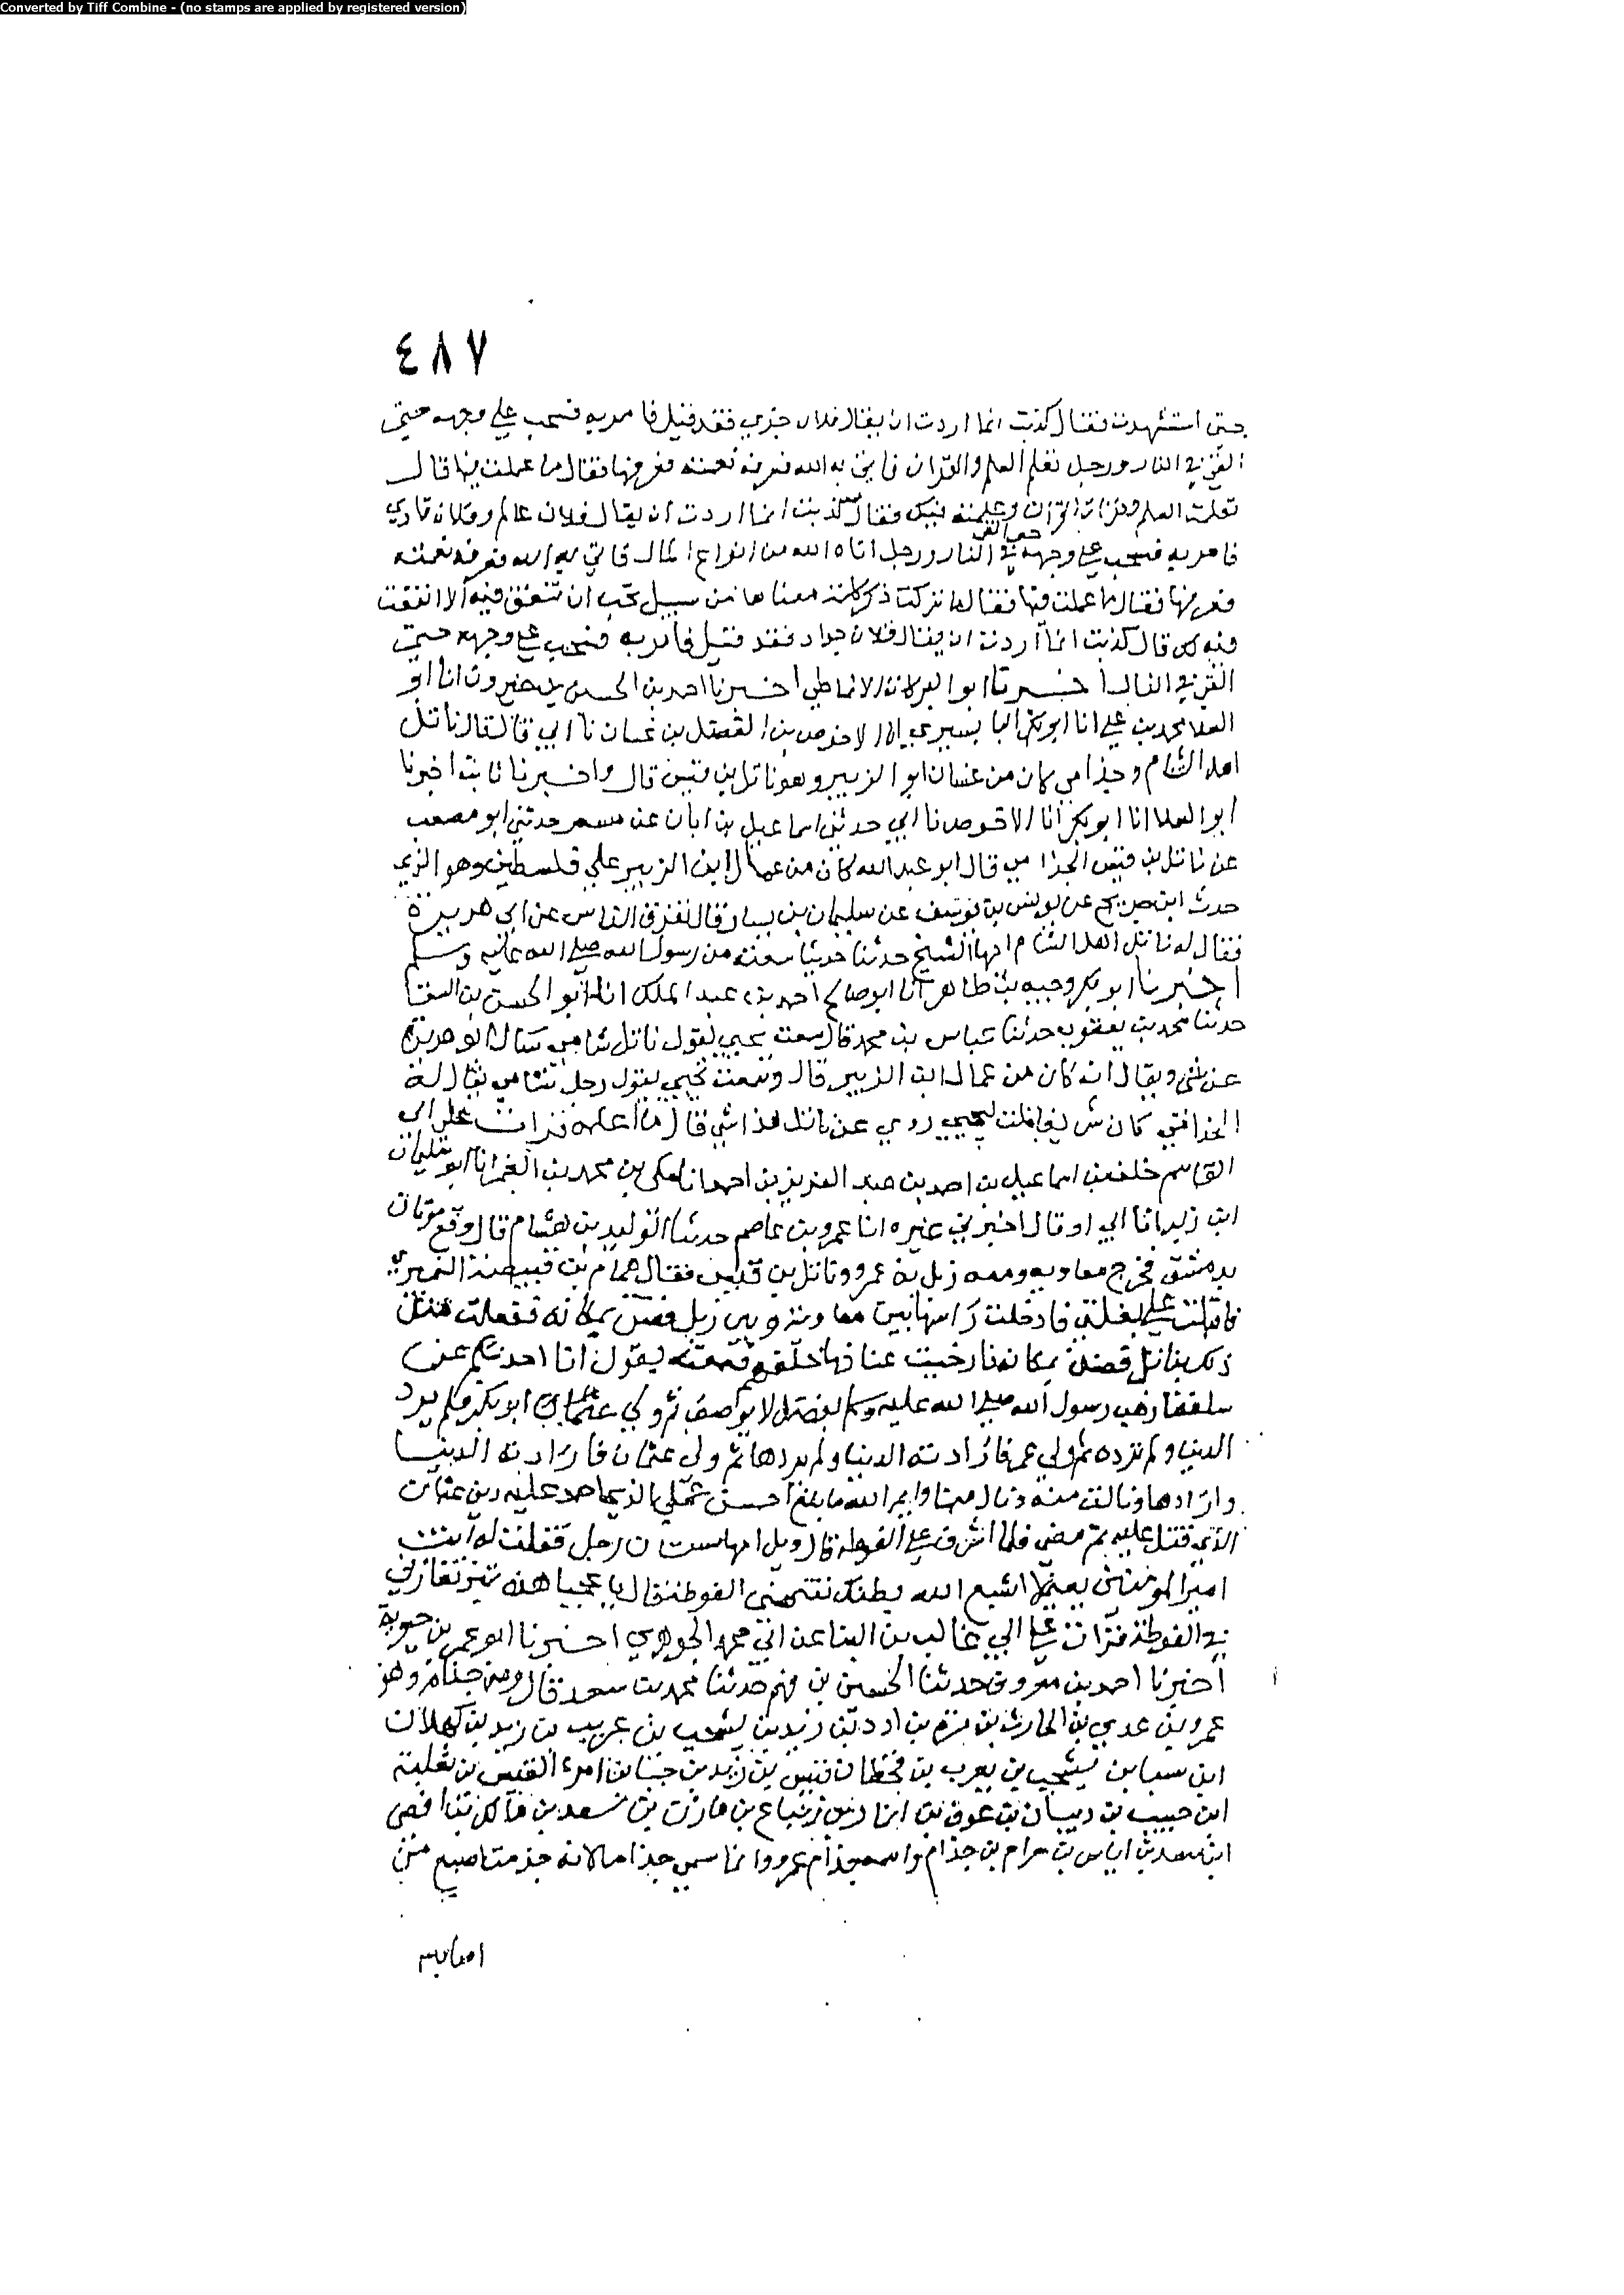 Converted by Tiff Combine - (no stamps are applied by registered version)
٤٨٧
حتى استشهدت فقال كذبت انما اردت ان يقال فلان جري فقد قيل فامر به فسحب على وجهه حتى
القي في النار ورجل تعلم العلم والقران فاتي به الله فعرفه نعمته فعرفها فقال ما عملت فيها قال
تعلمت العلم وقرات القرآن وعلمته فيك فقال كذبت انما اردت ان يقال فلان عالم وفلان قاري
حتى القي
فامر به فسحب على وجهه في النار ورجل اتاه الله من انواع المال فاتي به الله فعرفه نعمته
فعرفها فقال ما عملت فيها فقال ما تركت ذكر كلمة معناها من سبيل تحب ان تنفق فيه الا انفقت
فيه لك قال كذبت انما اردت ان يقال فلان جواد فقد قيل فامر به فسحب على وجهه حتى
القي في النار اخبرنا ابو البركات الانماطي اخبرنا احمد بن الحسن بن خيرون انا ابو
العلا محمد بن علي انا ابو بكر البابسيري انا الاحوص بن الفضل بن غسان نا ابي قال قال ناتل
اهل الشام وجذامي كان من غسان ابو الزبير وهو ناتل بن قيس قال واخبرنا ثابت اخبرنا
ابو العلا انا ابو بكر انا الاحوص نا ابي حدثني اسماعيل بن ابان عن مسعر حدثني ابو مصعب
عن ناتل بن قيس الجذامي قال ابو عبد الله كان من عمال ابن الزبير على فلسطين وهو الذي
حدث ابن جريج عن يونس بن يوسف عن سليمان بن يسار قال تفرق الناس عن ابي هريرة
فقال له ناتل اهل الشام ايها الشيخ حدثنا حديثا سمعته من رسول الله صلى الله عليه وسلم
اخبرنا ابو بكر وجيه بن طاهر انا ابو صالح احمد بن عبد الملك انا ابو الحسن بن السقا
حدثنا محمد بن يعقوب حدثنا عباس بن محمد قال سمعت يحيى يقول ناتل شامي سال ابو هريرة
عن شي ويقال انه كان من عمال ابن الزبير قال وسمعت يحيى يقول رجل شامي يقال له
الجذامي كان شريفا قلت ليحيى روى عن ناتل هذا شي قال ما اعلمه قرات على ابي
القاسم خلف بن اسماعيل بن احمد بن عبد العزيز بن احمد انا مكي بن محمد بن الغمر انا ابو سليمان
ابن زبر انا ابي او قال اخبرني غيره انا عمرو بن عاصم حدثنا الوليد بن هشام قال وقع موتان
بدمشق فخرج معاويه ومعه زبل بن عمرو وناتل بن قيس فقال همام بن قبيصة النميري
فاقبلت على بغلتي فادخلت راسها بين معاوية وبين زبل فضن بمكانه ففعلت مثل
ذلك بناتل فضن بمكانه فارخيت عنانها خلفهم فسمعته يقول انا احدثكم عن
سلفنا ذهب رسول الله صلى الله عليه وسلم بفضل لا يواصف ثم ولي ابو بكر فلم يرد
الدنيا ولم ترده ثم ولي عمر فارادته الدنيا ولم يردها ثم ولي عثمان فارادته الدنيا
وارادها ونالت منه ونال منها وايم الله ما بلغ احسن عملي الذي
الذي قتل عليه ثم مضى فلما اشرف على الغوطة قال ويل امها بستان رجل فقلت له انت
امير المومنين يعني لا اشبع الله بطنك تتمنى الغوطة فقال يا عجبا هذه
في الغوطة قرات على ابي غالب بن البنا عن ابي محمد الجوهري اخبرنا ابو عمر بن حيويه
اخبرنا احمد بن معروف حدثنا الحسين بن فهم حدثنا محمد بن سعد قال ومن جذام وهو
عمرو بن عدي بن الحارث بن مرة بن ادد بن زيد بن يشجب بن عريب بن زيد بن كهلان
ابن سبا بن يشجب بن يعرب بن قحطان قيس بن زيد بن جبا بن امرء القيس بن ثعلبة
ابن حبيب بن ذبيان بن عوف بن انمار بن زنباع بن مازن بن سعد بن مالك بن افصى
ابن سعد بن اياس بن حرام بن جذام واسم جذام عمرو وانما سمي جذاما لانه جذمت اصبع من
اصابعه